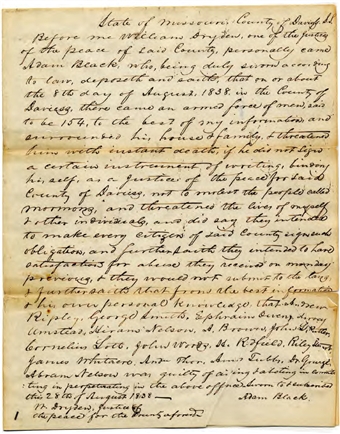 State of Missouri, County of Daviess Ss
Before me William Dryden, one of the justices
of the peace of said County, personally came
Adam Black, who, being duly sworn according
to law, deposeth and saith, that on or about
the 8th day of August, 1838. in the County of
Daviess, there came an armed force of men, said
to be 154, to the best of my information and
surrounded his, house & family, & threatened
him with instant death, if he did not sign
a certain instrument of writing, binding
his, self, as a Justice of the peace for said
County of Daviess, not to molest the people called
Mormons, and threatened the lives of myself
& other individuals, and did say they intended
to make every citizen of said County sign such
obligation, and further saith they intended to have
satisfaction for abuse they received on monday
previous, & they would not submit to the laws,
& further saith that from the best information
& his own personal knowledge that Andrew
Ripley, George Smith, Ephraim Owens,
Amsteas, Hiram Nelson, A. Brown, John L.
Cornelius Lott, John Woods, H. Redfield, Riley
James Whitaker, And Thos. And Tubbs, Dr.
Abram Nelson was guilty of aiding & abeting in comit
ting in perpetrating in the above offence. Sworn to & subscribed
this 28th of August 1838 —
W. Dryden, Justice of
the peace for the County aforesd.
Adam Black.
1